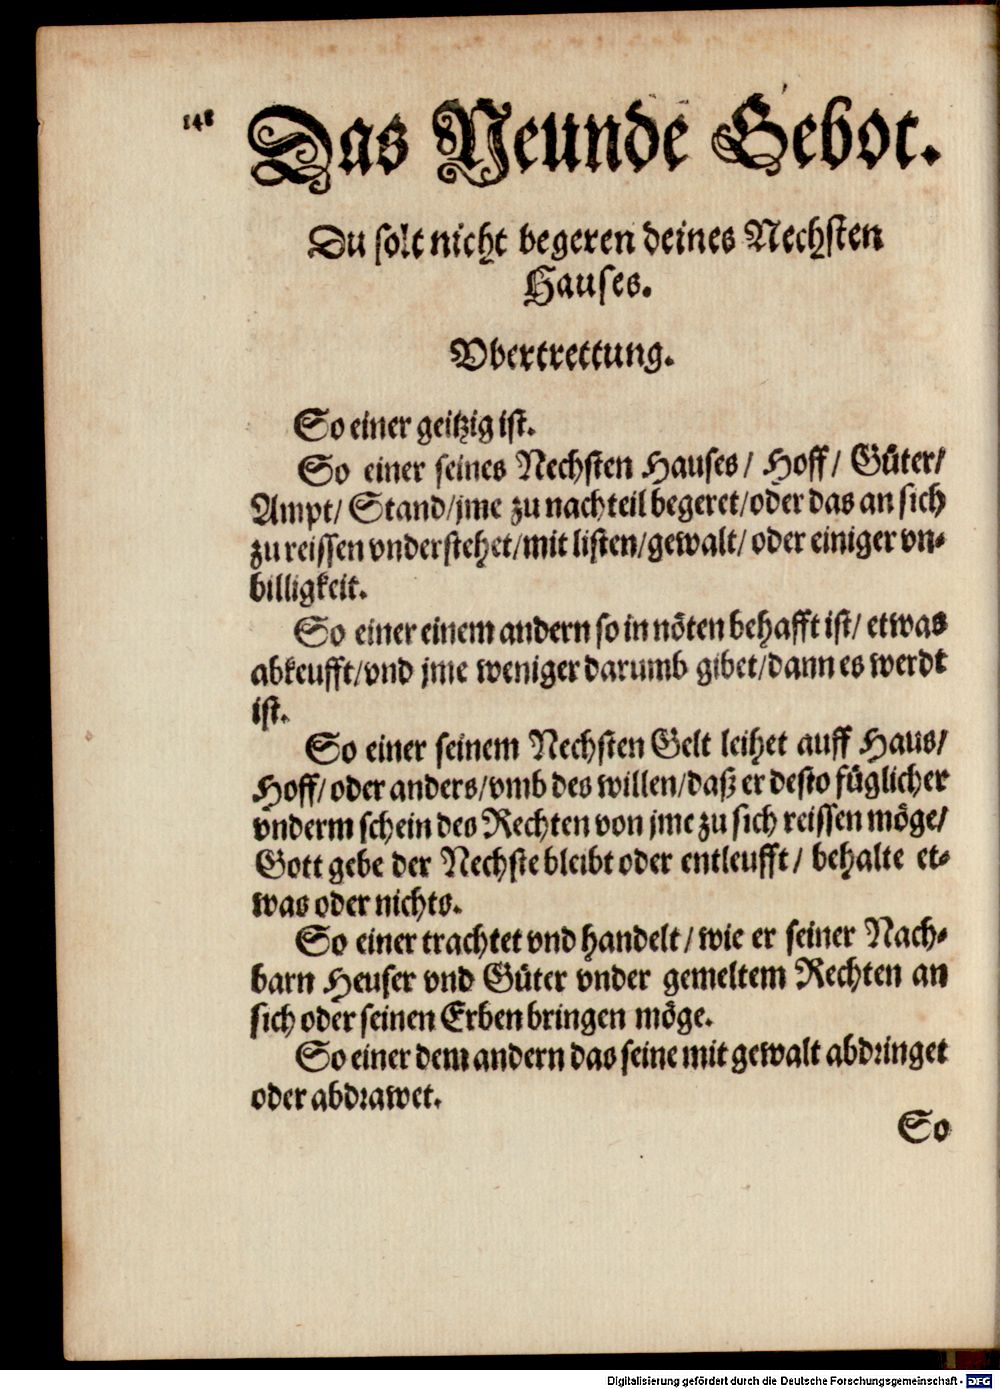 148
Das Neunde Gebot.
Du solt nicht begeren deines Nechsten
Hauses.
Vbertrettung.
So einer geitzig ist.
So einer seines Nechsten Hauses/ Hoff/ Güter/
Ampt/ Stand/ jme zu nachteil begeret/ oder das an sich
zu reissen vnderstehet/ mit listen/ gewalt/ oder einiger vn-
billigkeit.
So einer einem andern so in nöten behafft ist/ etwas
abkeufft/ vnd jme weniger darumb gibet/ dann es werdt
ist.
So einer seinem Nechsten Gelt leihet auff Haus/
Hoff/ oder anders/ vmb des willen/ daß er desto füglicher
vnderm schein des Rechten von jme zu sich reissen möge/
Gott gebe der Nechste bleibt oder entleufft/ behalte et-
was oder nichts.
So einer trachtet vnd handelt/ wie er seiner Nach-
barn Heuser vnd Güter vnder gemeltem Rechten an
sich oder seinen Erben bringen möge.
So einer dem andern das seine mit gewalt abdringet
oder abdrawet.
So
Digitalisierung gefördert durch die Deutsche Forschungsgemeinschaft - DFG